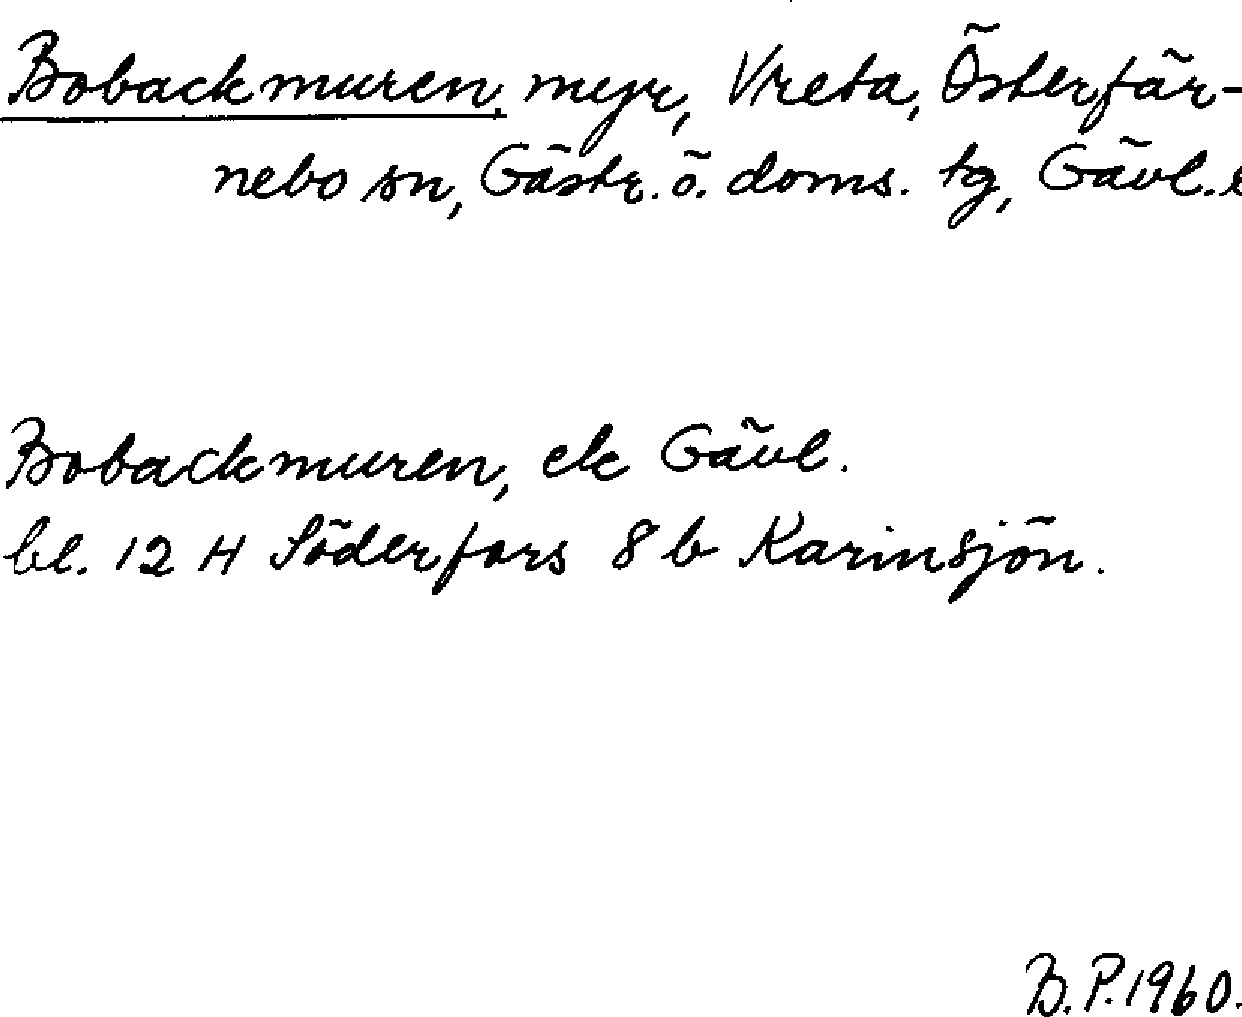 Bobackmuren, myr, Vreta, Österfär-
nebo sn, Gästr. ö. doms. tg, Gävl.
Bobackmuren, ek Gävl.
bl. 12 H Söderfors 8 b Karinsjön.
B.P.1960.